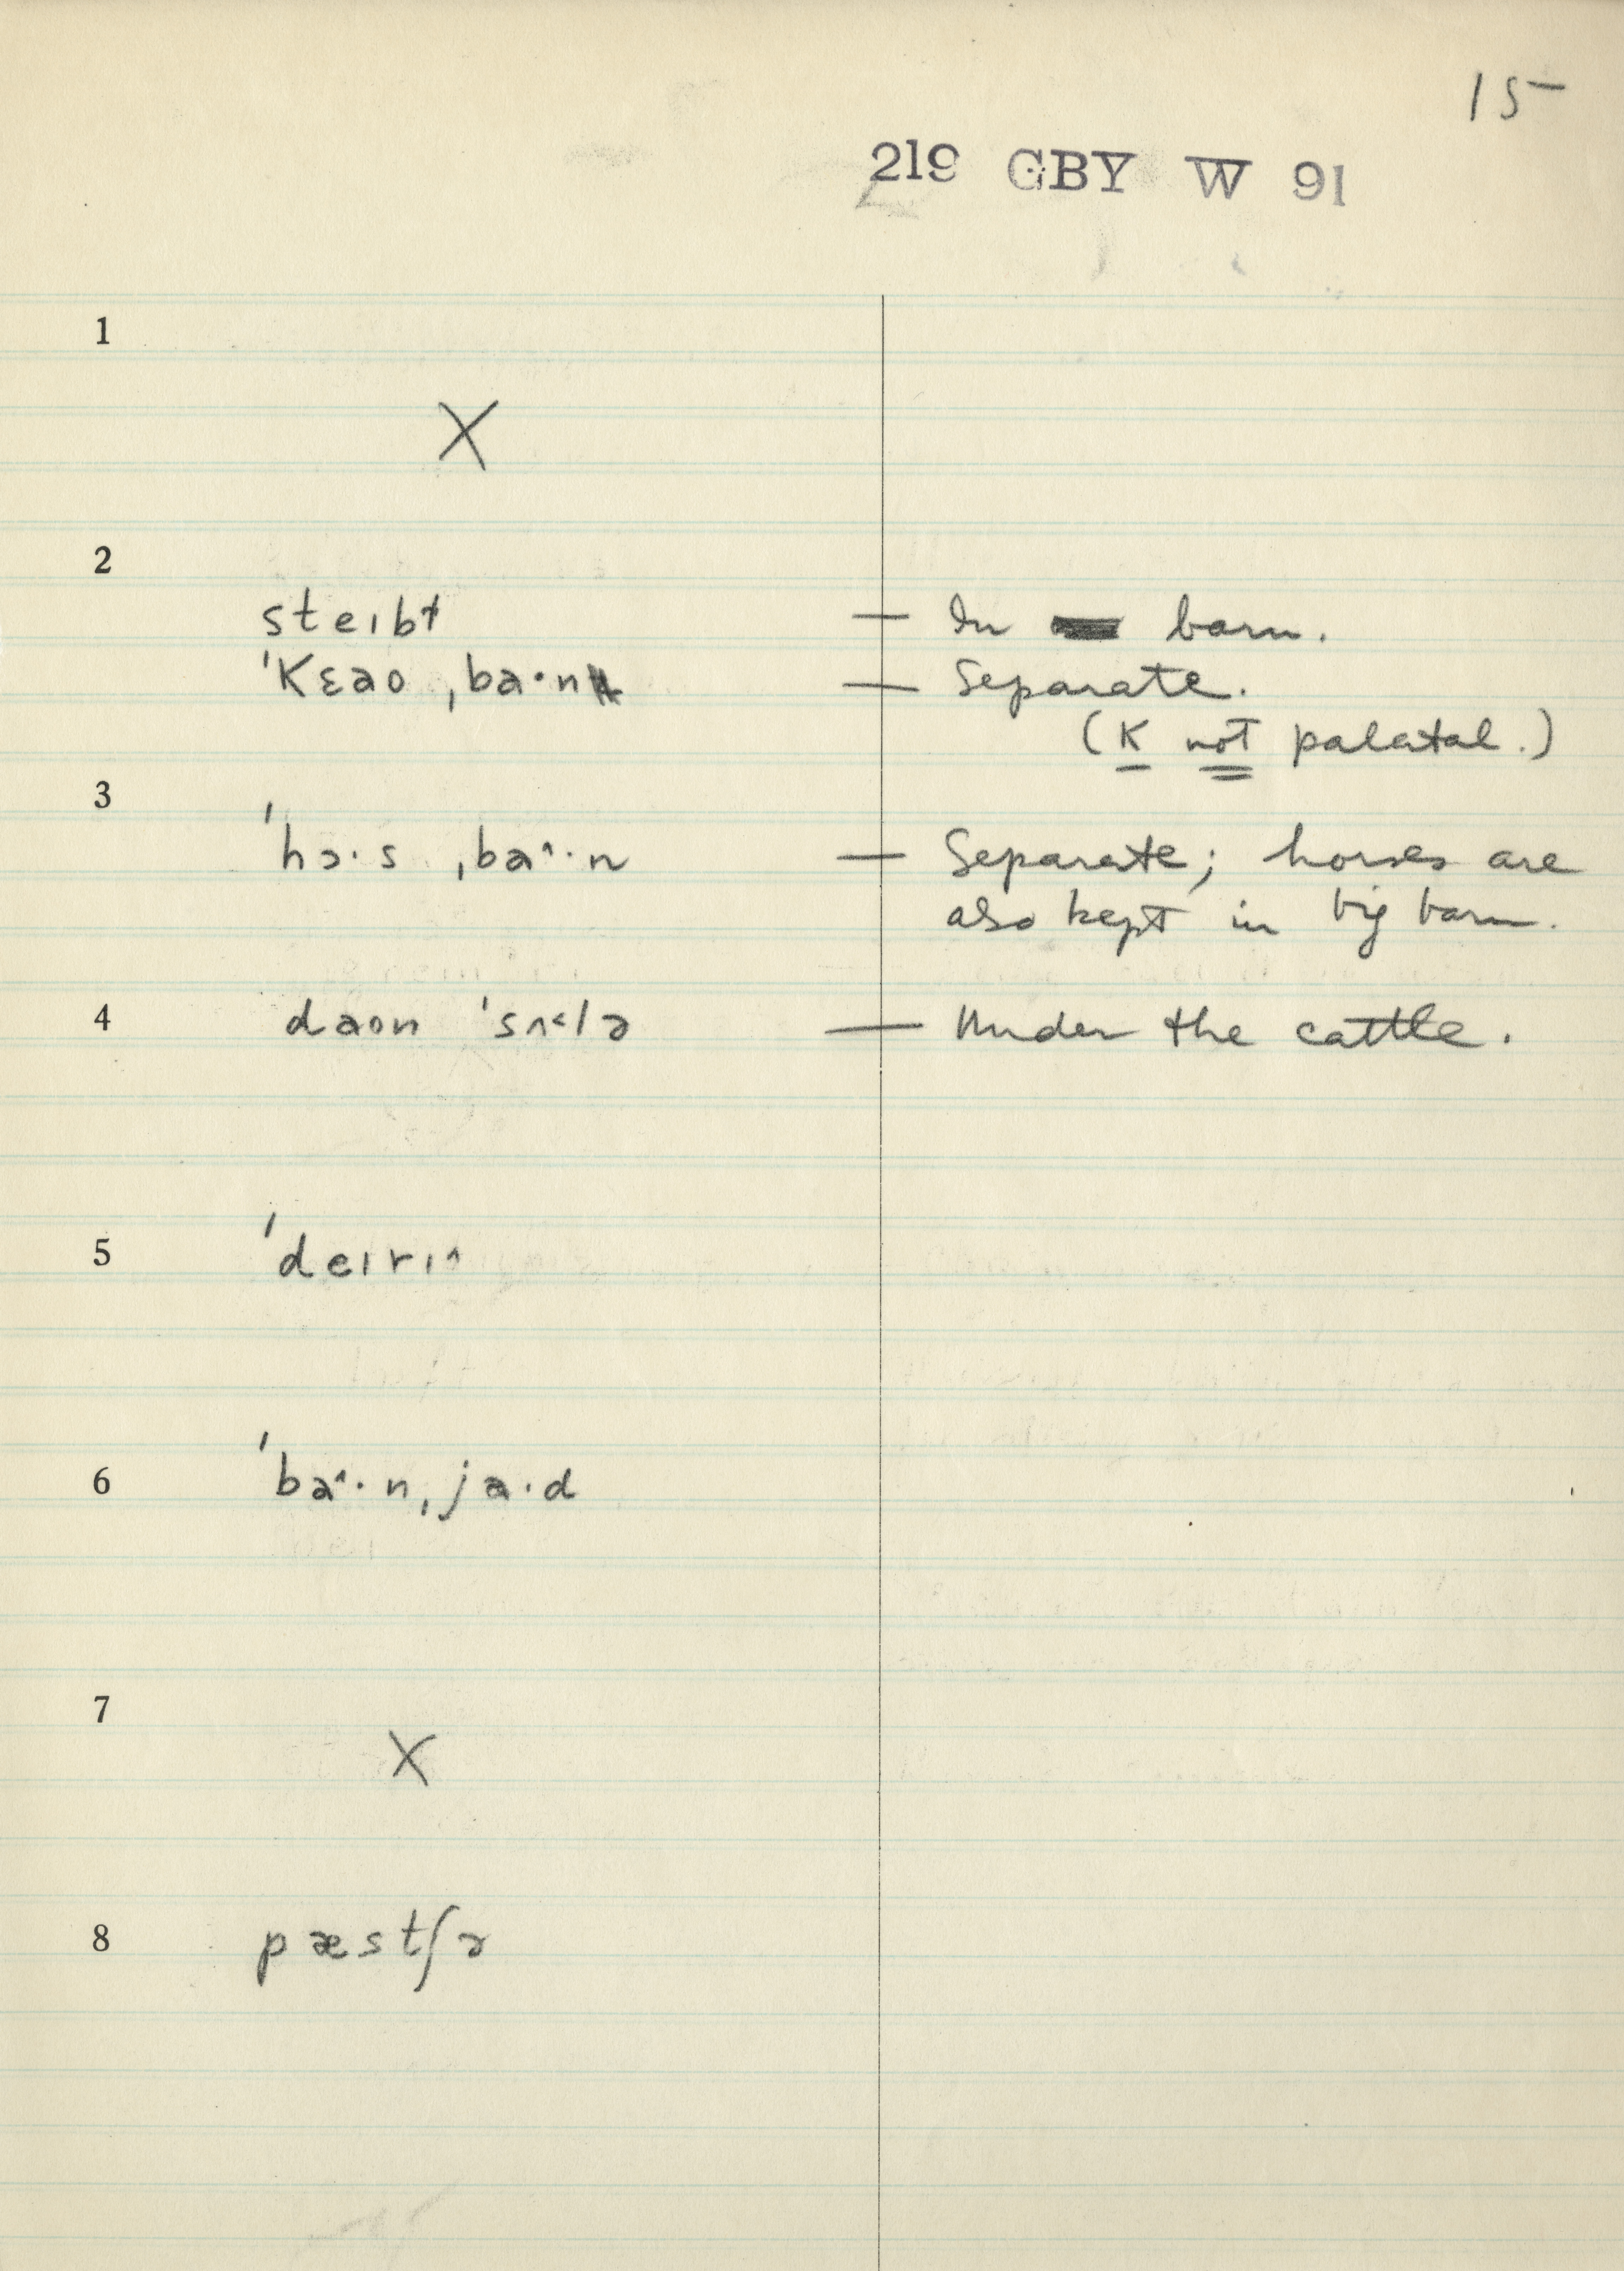 15
219 GBY W 91
1
X
2
steɪbɫ — In barn.
ˈKɛao ˌba·n — Separate.
(K not palatal.)
3
ˈhɔ·s ˌba^·n — Separate; horses are
also kept in big barn.
4 daon ˈsʌ<lə — Under the cattle.
5 ˈdeɪrɪ^
6 ˈba^·nˌja·d
7
X
8 pæstʃə